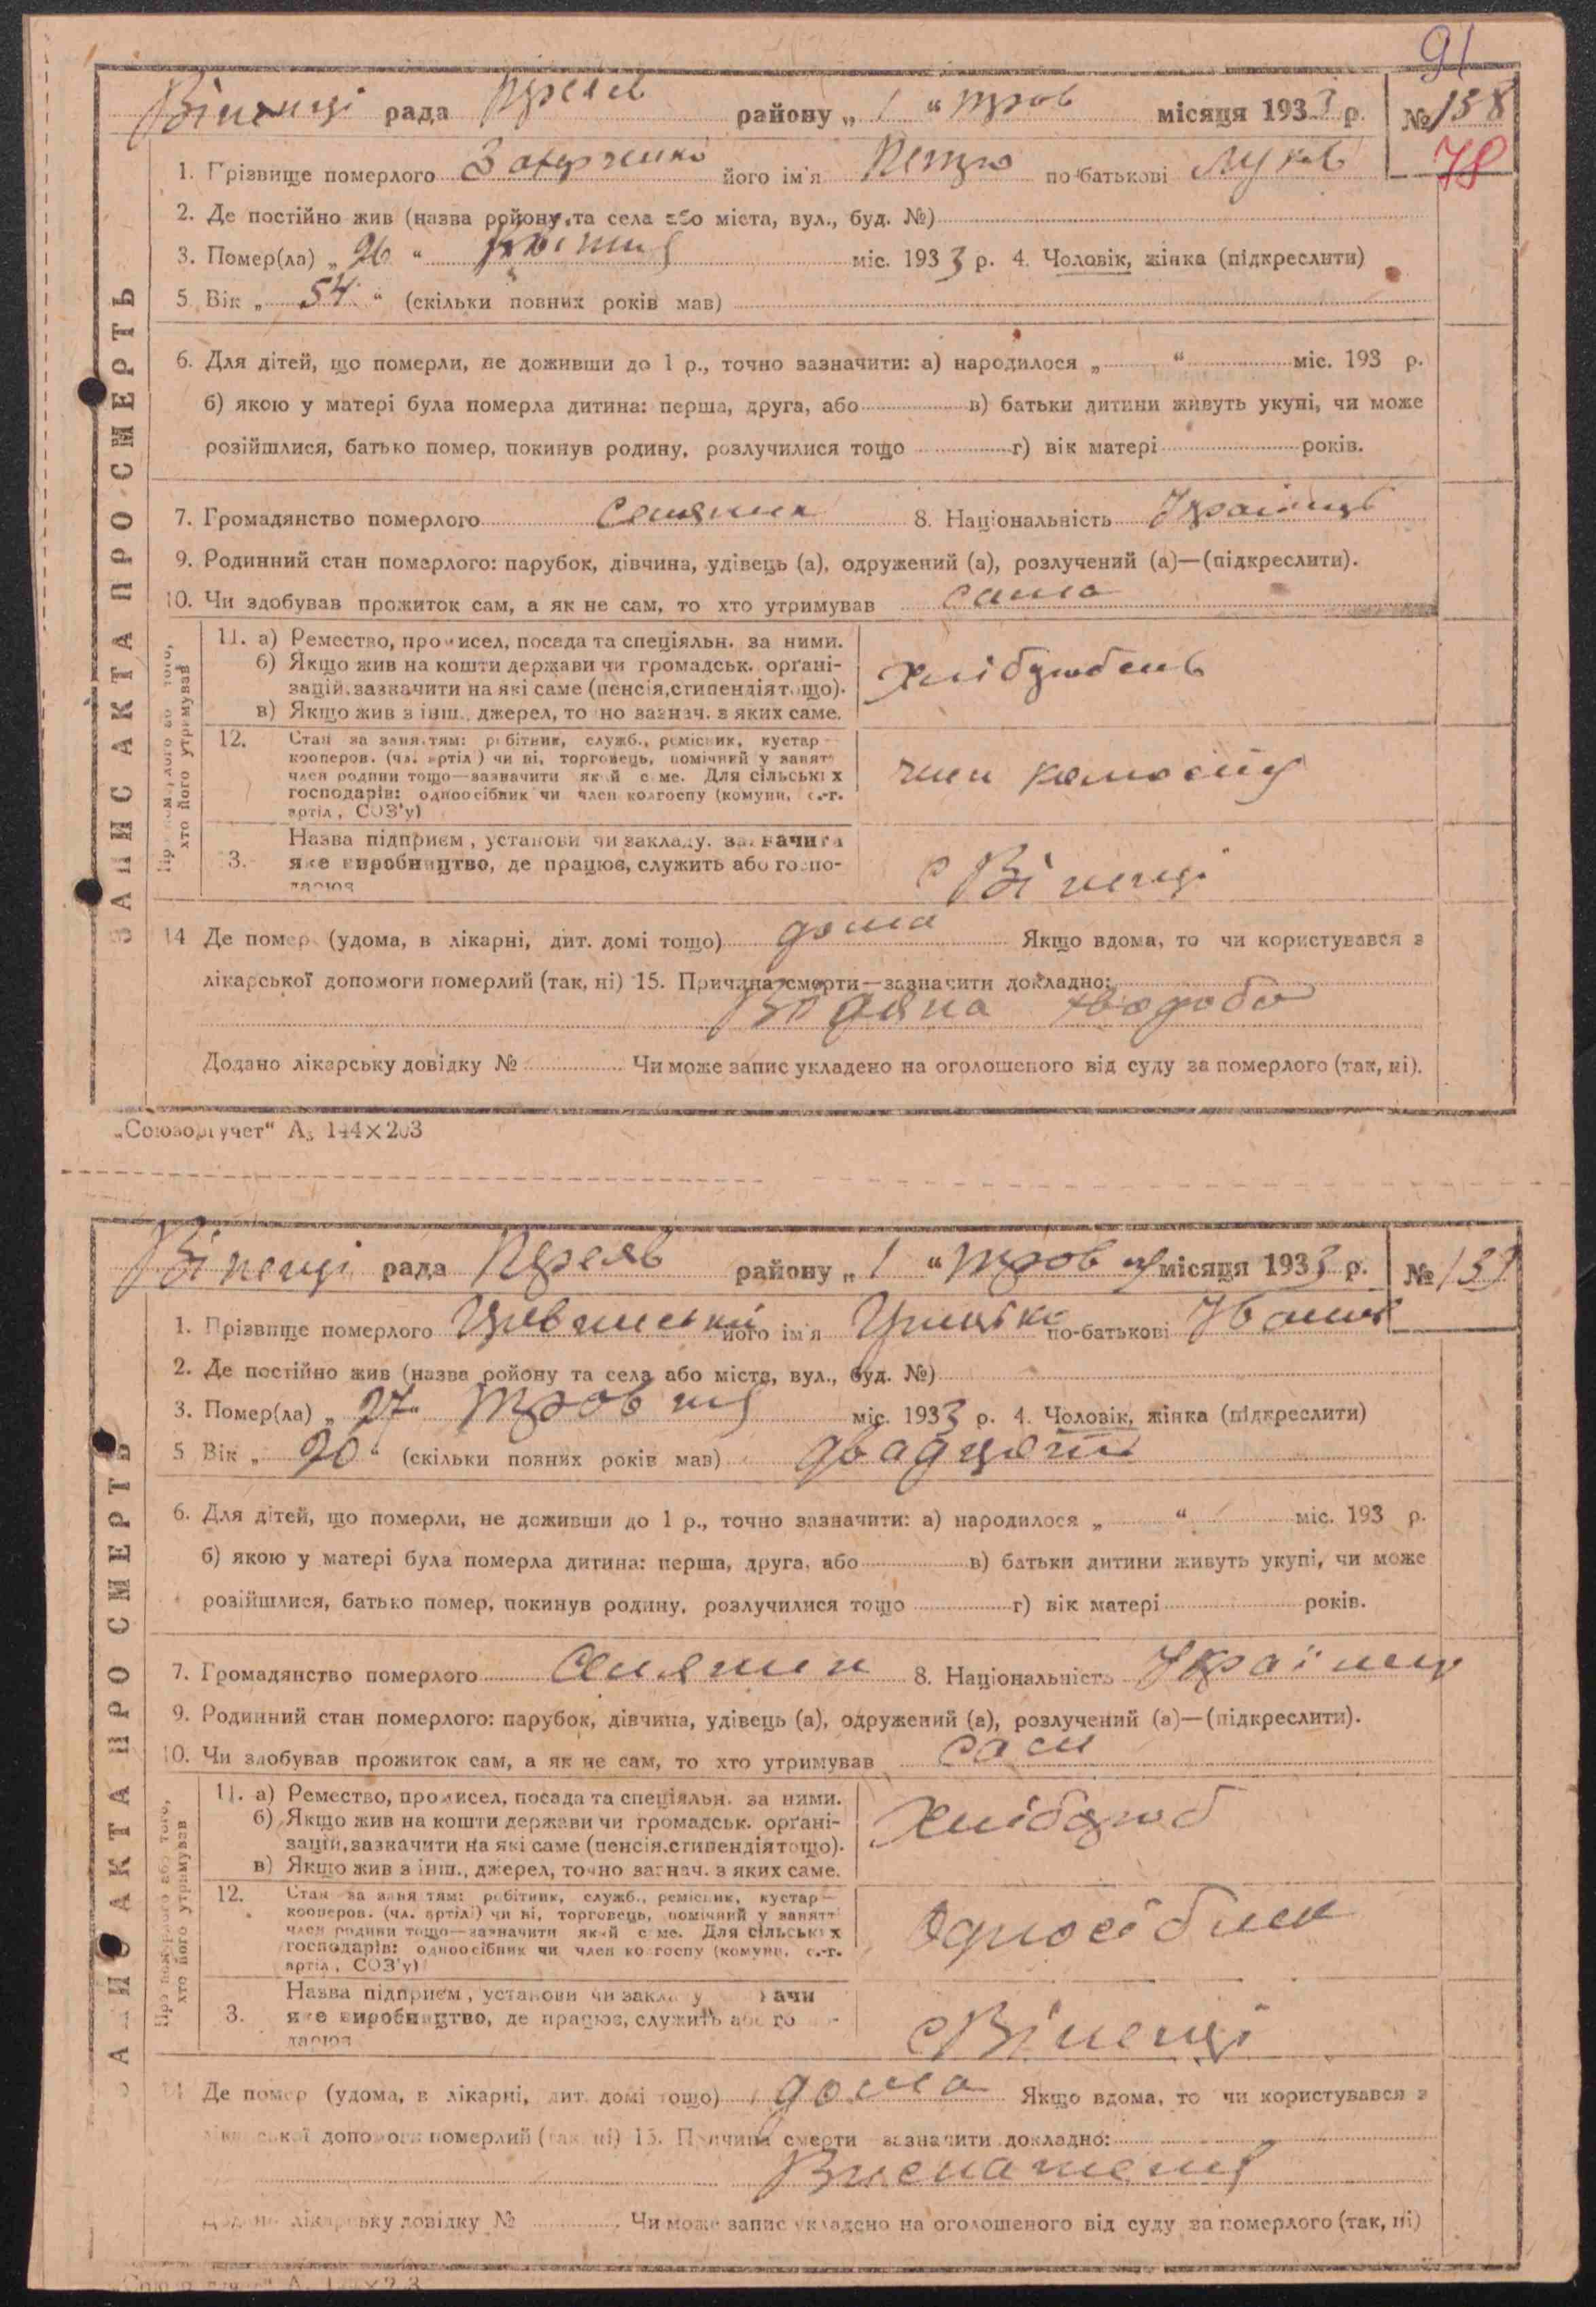 91
Віненці рада район у „ 1 “ трав місяця 1933 р. № 138
78
1. Прізвище померлого його ім'я Петро по батькові Луков
2. Де постійно жив (назва ройону та села або міста, вул., буд. №)
3. Помер(ла) „ 26 “ міс. 1933 р. 4. Чоловік, жінка (підкреслити)
5. Вік „ 54 “ (скільки повних років мав)
6. Для дітей, що померли, не доживши до 1 р., точно зазначити: а) народилося „ “ міс. 193 р.
б) якою у матері була померла дитина: перша, друга, або в) батьки дитини живуть укупі, чи може
розійшлися, батько помер, покинув родину, розлучилися тощо г) вік матері років.
7. Громадянство померлого Селянин 8. Національність Українць
9. Родинний стан померлого: парубок, дівчина, удівець (а), одружений (а), розлучений (а)—(підкреслити).
10. Чи здобував прожиток сам, а як не сам, то хто утримував
ЗАПИС АКТА ПРО СМЕРТЬ
Про померлого або того, хто його утримував
11. а) Ремество, промисел, посада та спеціяльн. за ними.
б) Якщо жив на кошти держави чи громадськ. орґані-
зацій, зазначити на які саме (пенсія, стипендія тощо).
в) Якщо жив з інш., джерел, точно зазнач. з яких саме.
Хліборобець
12. Стан за занятям: робітник, служб., ремісник, кустар—
кооперов. (чл. артіл) чи ні, торговець, помічний у занятт
член родини тощо—зазначити який саме. Для сільських
господарів: одноосібник чи член колгоспу (комуни, с.-г.
артіл, СОЗ'у)
член колгоспу
3. Назва підприєм, установи чи закладу, зазначити
яке виробництво, де працює, служить або госпо-
дарює
с Віненці
14 Де помер (удома, в лікарні, дит. домі тощо) дома Якщо вдома, то чи користувався з
лікарської допомоги померлий (так, ні) 15. Причина смерти—зазначити докладно:
Водяна хвороба
Додано лікарську довідку № Чи може запис укладено на оголошеного від суду за померлого (так, ні).
„Союзоргучет“ А5 144×203
Віненці рада район у „ 1 “ травня місяця 1933 р. № 139
1. Прізвище померлого його ім'я по-батькові Іванов
2. Де постійно жив (назва ройону та села або міста, вул., буд. №)
3. Помер(ла) „ 27 “ травня міс. 1933 р. 4. Чоловік, жінка (підкреслити)
5 Вік „ 20 “ (скільки повних років мав) двадцять
6. Для дітей, що померли, не доживши до 1 р., точно зазначити: а) народилося „ “ міс. 193 р.
б) якою у матері була померла дитина: перша, друга, або в) батьки дитини живуть укупі, чи може
розійшлися, батько помер, покинув родину, розлучилися тощо г) вік матері років.
7. Громадянство померлого Селянин 8. Національність Українц
9. Родинний стан померлого: парубок, дівчина, удівець (а), одружений (а), розлучений (а)—(підкреслити).
10. Чи здобував прожиток сам, а як не сам, то хто утримував сам
ЗАПИС АКТА ПРО СМЕРТЬ
Про померлого або того, хто його утримував
11. а) Ремество, промисел, посада та спеціяльн. за ними.
б) Якщо жив на кошти держави чи громадськ. орґані-
зацій, зазначити на які саме (пенсія, стипендія тощо).
в) Якщо жив з інш., джерел, точно зазнач. з яких саме.
Хлібороб
12. Стан за занятям: робітник, служб., ремісник, кустар—
кооперов. (чл. артілі) чи ні, торговець, помічний у занятт
член родини тощо—зазначити який саме. Для сільських
господарів: одноосібник чи член колгоспу (комуни, с.-г.
артіл, СОЗ'у)
Одноосібник
3. Назва підприєм, установи чи закладу ачи
яке виробництво, де працює, служить або го
дарює
с Віненці
14 Де помер (удома, в лікарні, дит. домі тощо) дома Якщо вдома, то чи користувався з
лікарської допомоги померлий (так, ні) 15. Причина смерти зазначити докладно:
Виснаження
Додано лікарську довідку № Чи може запис укладено на оголошеного від суду за померлого (так, ні)